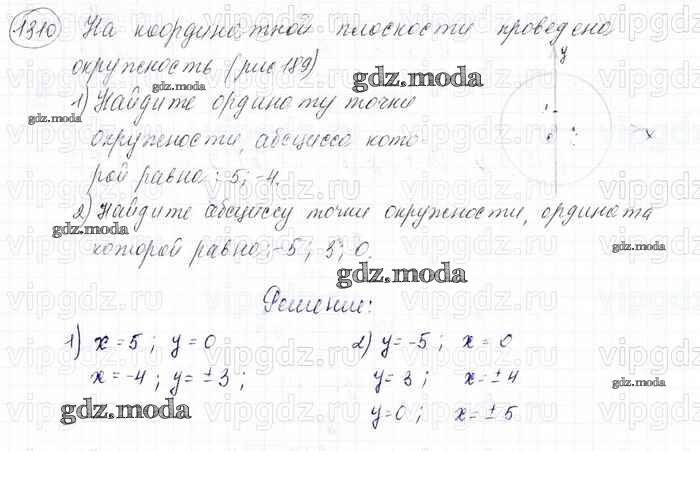 1310 На координатной плоскости проведена
окружность (рис 189)
1) Найдите ординату точки
окружности, абсцисса кото-
рой равна: 5; -4.
2) Найдите абсциссу точки окружности, ордината
которой равна: -5; 3; 0.
Решение:
1) x = 5; y = 0
x = -4; y = ±3;
2) y = -5; x = 0
y = 3; x = ±4
y = 0; x = ±5
y
x
gdz.moda
gdz.moda
gdz.moda
gdz.moda
gdz.moda
gdz.moda
gdz.moda
gdz.moda
vipgdz.ru